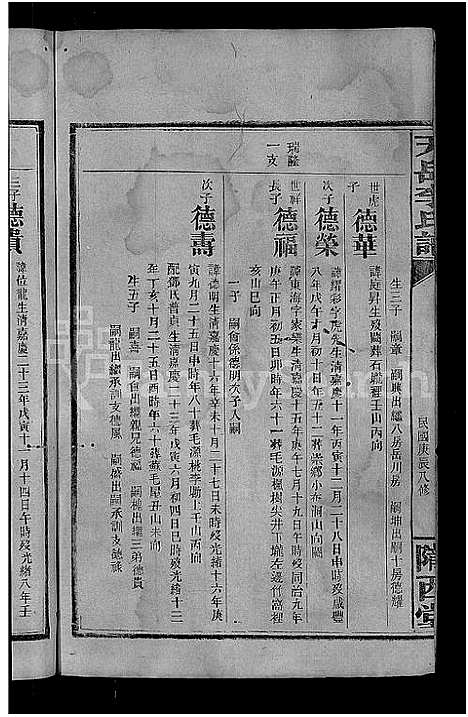 天岳李氏譜
民國庚辰八修
隴西堂
生三子 嗣章 嗣興出繼八房岳川房 嗣坤出嗣十房德耀
世虎子
德華
諱庭昇生歿闕葬石龍裡壬山丙向
次子
德榮
諱耀彩字虎先生清嘉慶十一年丙寅十二月二十八日申時歿咸豐
八年戊午九月初十日午時年五十一葬崇鄉小布洞山向闕
瑞隆一支
世祥長子
德福
諱東海字家樂生清嘉慶十五年庚午七月十九日時歿同治九年
庚午正月初五日卯時年六十一葬毛源楓樹尖井丁壠左邊竹窩裡
亥山巳向
一子 嗣會係德明次子入嗣
次子
德壽
諱德明生清嘉慶十六年辛未十月二十七日未時歿光緒十六年庚
寅九月二十五日申時年八十葬毛源桃李坳上壬山丙向
配鄧氏普貞生清嘉慶二十三年戊寅六月初四日巳時歿光緒十三
年丁亥十月二十五日酉時年六十葬蘇毛昆丑山未向
生五子 嗣喜 嗣會出繼親兄德福 嗣桃出繼三弟德貴
嗣龍出繼承訓支德風 嗣盛出嗣承訓支德綠
三子
德貴
諱位龍生清嘉慶二十三年戊寅十一月十四日午時歿光緒八年壬